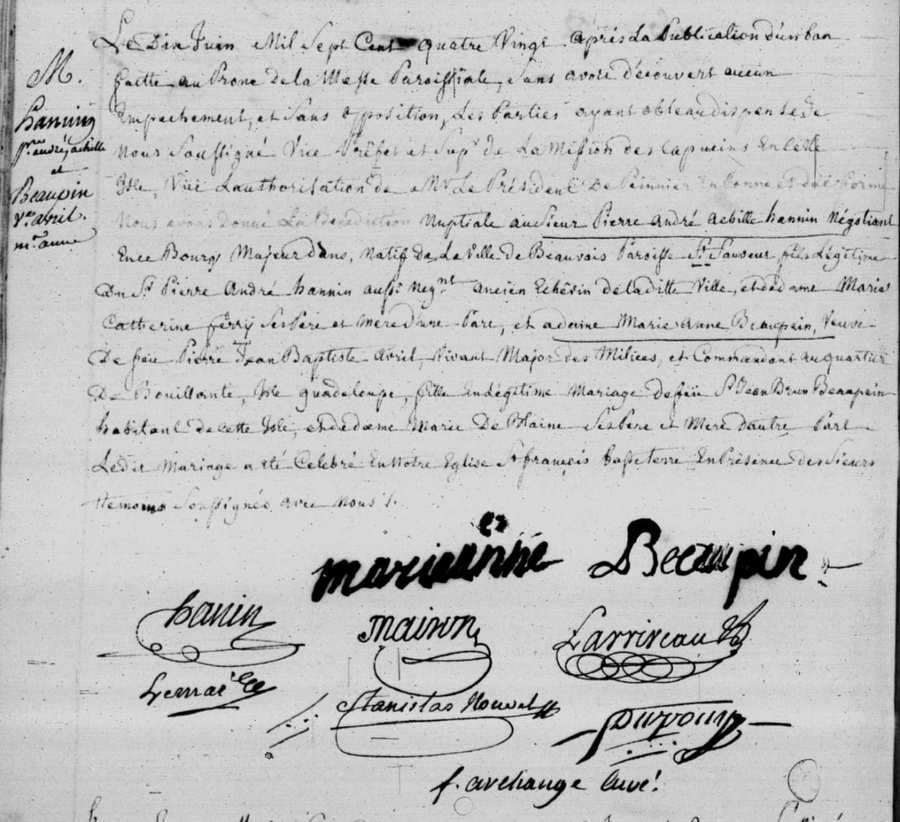 M.
hannin
pre. andré, achille
et
Beaupin
Ve. avril.
m. anne
Le Dix Juin Mil Sept Cent quatre Vingt après la Publication d'un ban
faitte au Prone de la Messe Paroissiale, sans avoir découvert aucun
Empechement, et Sans opposition, Les Parties ayant obtenu dispense de
Nous Soussigné Vice Préfet et Supr. de La Mission des Capucins En cette
Isle, Vüe L'authorisation de Mr. Le Président De Peinnier En bonne et düe forme
Nous avons donné La Benediction Nuptiale au Sieur Pierre André Achille hannin Négotiant
En ce Bourg Majeur d'ans, natif de La Ville de Beauvais Paroisse St. Sauveur fils Légitime
Du Sr. Pierre André hannin aussi Negnt. ancien Echevin de la ditte Ville, et de dame Marie
Catherine ferry Ses Pere et Mere d'une Part, et a dame Marie Anne Beaupein, Veuve
De feu Pierre Jean Baptiste Avril, Vivant Major des Milices, et Commandant au quartier
De Bouillante, Isle guadeloupe, fille En Légitime Mariage de feu Sr. Jean Brun Beaupein
habitant de cette Isle, et de dame Marie De Blaine Ses Pere et Mere d'autre Part
Le dit Mariage a été Celebré En Notre Eglise St. françois Basseterre En Présence des Sieurs
temoins Soussignés avec Nous /.
marieanne Beaupin
hanin
Maison
Larriveau
Lemaire
Stanislas
f. archange Curé